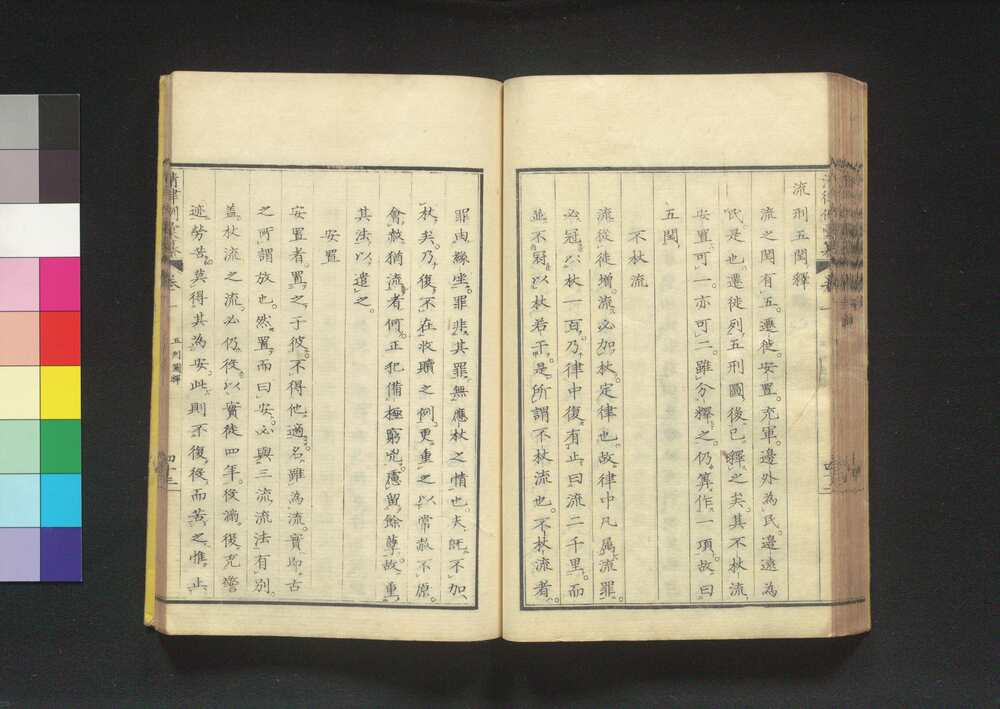 流刑五閏釋
流之閏有五。遷徙。安置。充軍。邊外為民。邊遠為
民。是也。遷徙列五刑圖。後已釋之矣。其不杖流
安置。可一。亦可二。雖分釋之。仍算作一項。故曰
五閏。
不杖流
流從徒增。流必加杖。定律也。故律中凡屬流罪。
必冠以杖一百。乃律中復有止曰流二千里。而
並不冠以杖若干。是所謂不杖流也。不杖流者。
罪由緣坐。罪非其罪。無應杖之情也。夫既不加
杖矣。乃復不在收贖之例。更重之以常赦不原。
會赦猶流者。何。正犯備極窮兇。慮留餘孽。故重
其法以遣之。
安置
安置者。置之于彼。不得他適。名雖為流。實即古
之所謂放也。然置而曰安。必與三流流法有別。
蓋杖流之流。必仍役以實徒四年。役滿後充警
迹。勞苦莫得其為安。此則不復役而苦之。惟止
卷一
五刑圖釋
四十三